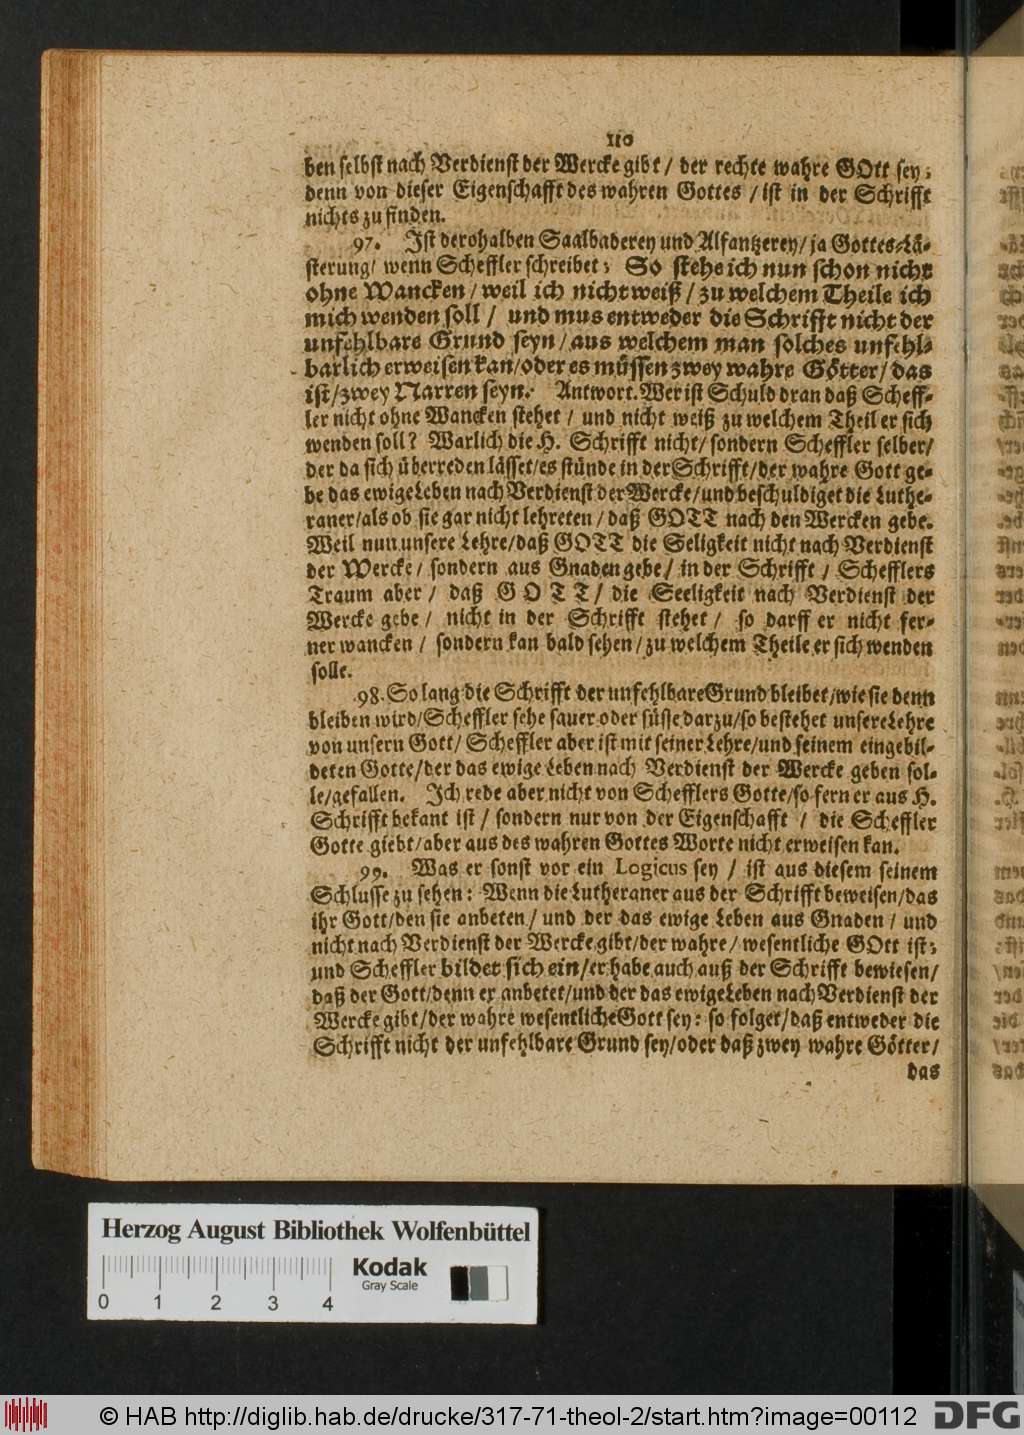 110
ben selbst nach Verdienst der Wercke gibt / der rechte wahre GOtt sey;
denn von dieser Eigenschafft des wahren Gottes / ist in der Schrifft
nichts zu finden.
97. Ist derohalben Saalbaderey und Alfantzerey/ ja Gottes-Lä-
sterung/ wenn Scheffler schreibet; So stehe ich nun schon nicht
ohne Wancken / weil ich nicht weiß / zu welchem Theile ich
mich wenden soll / und mus entweder die Schrifft nicht der
unfehlbare Grund seyn / aus welchem man solches unfehl-
barlich erweisen kan/oder es müssen zwey wahre Götter/ das
ist/zwey Narren seyn. Antwort. Wer ist Schuld dran daß Scheff-
ler nicht ohne Wancken stehet / und nicht weiß zu welchem Theil er sich
wenden soll? Warlich die H. Schrifft nicht/ sondern Scheffler selber/
der da sich überreden lässet/es stünde in der Schrifft/der wahre Gott ge-
be das ewige Leben nach Verdienst der Wercke/und beschuldiget die Luthe-
raner/als ob sie gar nicht lehreten / daß GOTT nach den Wercken gebe.
Weil nun unsere Lehre/daß GOTT die Seligkeit nicht nach Verdienst
der Wercke/ sondern aus Gnaden gebe/ in der Schrifft / Schefflers
Traum aber / daß GOTT/ die Seeligkeit nach Verdienst der
Wercke gebe / nicht in der Schrifft stehet / so darff er nicht fer-
ner wancken / sondern kan bald sehen / zu welchem Theile er sich wenden
solle.
98. So lang die Schrifft der unfehlbare Grund bleibet/wie sie denn
bleiben wird/Scheffler sehe sauer oder süsse darzu/so bestehet unsere Lehre
von unsern Gott/ Scheffler aber ist mit seiner Lehre/und seinem eingebil-
deten Gotte/der das ewige Leben nach Verdienst der Wercke geben sol-
le/gefallen. Ich rede aber nicht von Schefflers Gotte/so fern er aus H.
Schrifft bekant ist / sondern nur von der Eigenschafft / die Scheffler
Gotte giebt/aber aus des wahren Gottes Worte nicht erweisen kan.
99. Was er sonst vor ein Logicus sey / ist aus diesem seinem
Schlusse zu sehen: Wenn die Lutheraner aus der Schrifft beweisen/das
ihr Gott/den sie anbeten / und der das ewige Leben aus Gnaden / und
nicht nach Verdienst der Wercke gibt/der wahre / wesentliche GOtt ist;
und Scheffler bildet sich ein/er habe auch auß der Schrifft bewiesen/
daß der Gott/denn er anbetet/und der das ewige Leben nach Verdienst der
Wercke gibt/der wahre wesentliche Gott sey: so folget/daß entweder die
Schrifft nicht der unfehlbare Grund sey/oder daß zwey wahre Götter/
das
Herzog August Bibliothek Wolfenbüttel
Kodak
Gray Scale
0 1 2 3 4
© HAB http://diglib.hab.de/drucke/317-71-theol-2/start.htm?image=00112
DFG